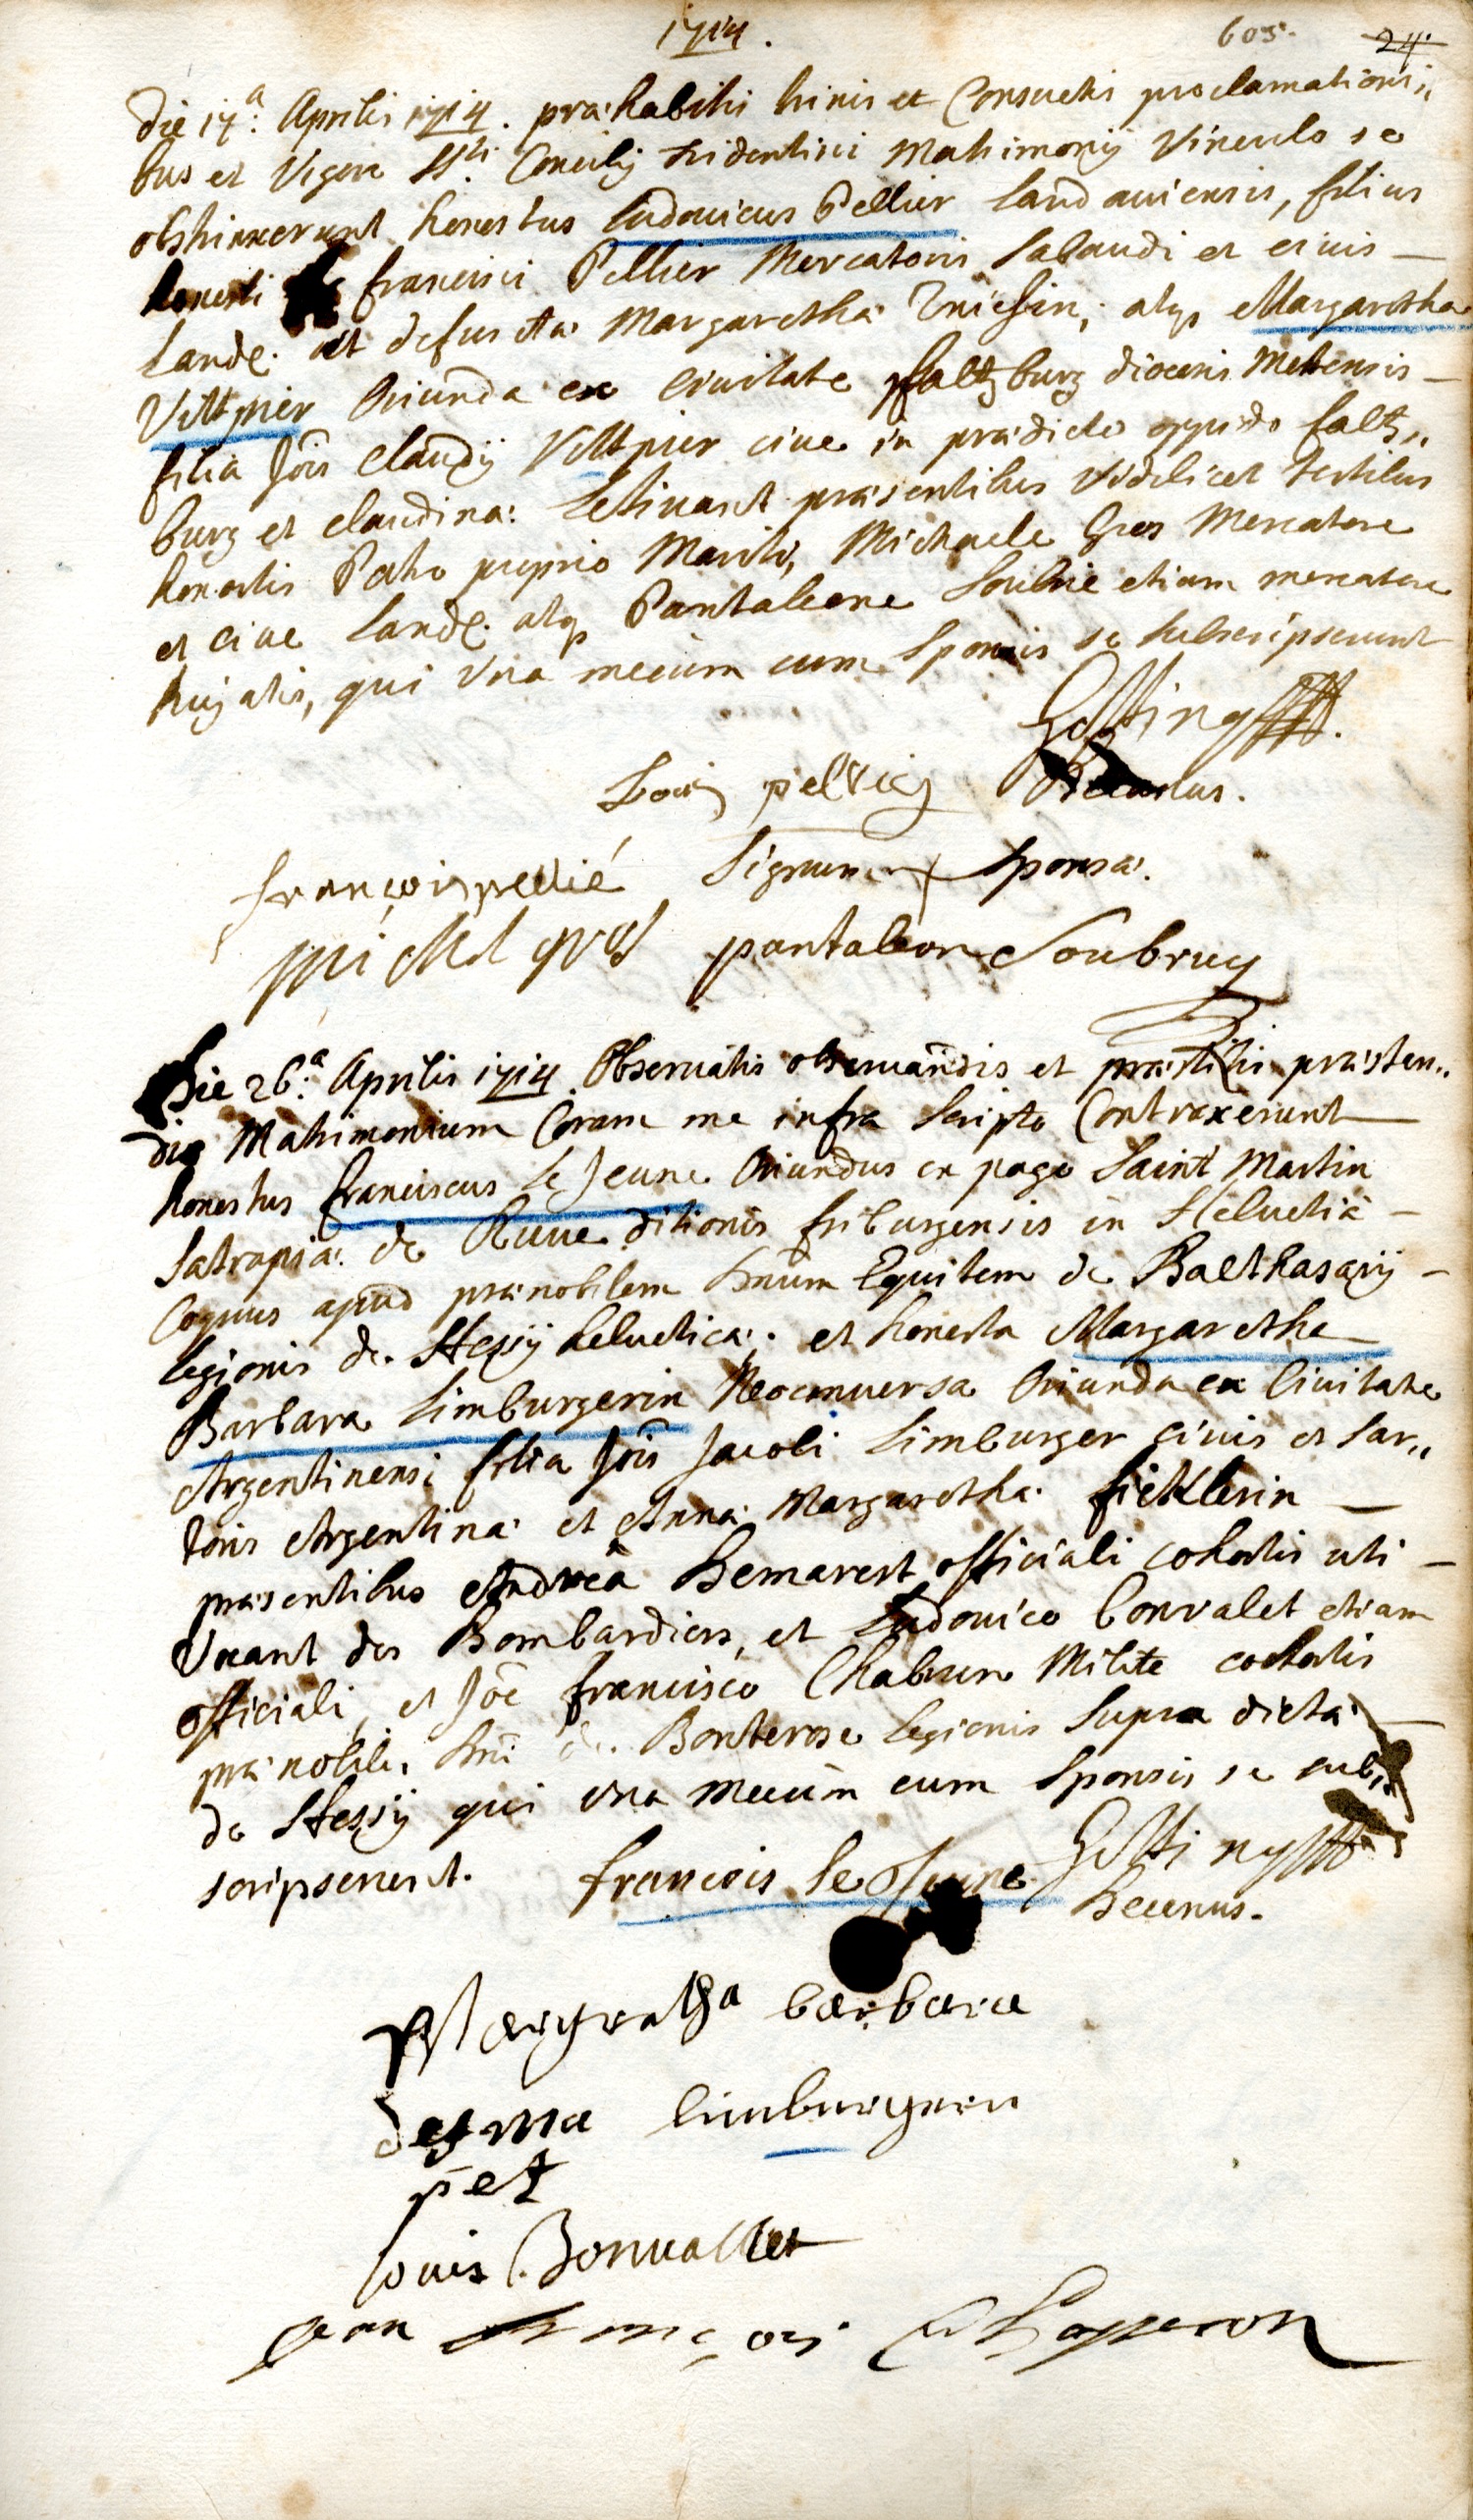 1714.
605. 24.
Die 17.a Aprilis 1714. præhabitis trinis et Consuetis proclamationi„
bus et Vigore SSti Concilij tridentini Matrimonij Vinculo se
obstrinxerunt honestus Ludovicus Pellier Landauiensis, filius
honesti francisci Pellier Mercatoris Sabaudi et ciuis –
Landę. et defunctæ Margarethæ, atq3 Margaretha
Vittpier Oriunda ex Ciuitate pfaltzburg diocesis Metensis –
filia Jõis Claudij Vittpier ciue in prædicto oppido faltz„
burg et claudinæ Letinant præsentibus videlicet testibus
honestis Patre proprio Mariti, Michaele Gros Mercatore
et ciue Landę. atq3 Pantaleone Soubrie etiam mercatore
hujatis, qui Vna mecum cum Sponsis se subscripserunt
Götting
Louis pellież Decanus.
françois pellié Signum + Sponsæ.
michel gros pantaleon Soubruy
Die 26.a Aprilis 1714 Observatis observandis et præstitis præsten„
dis Matrimonium Coram me infra Scripto Contraxerunt
honestus franciscus le Jeune Oriundus ex pago Saint Martin
Satrapiæ de Ruue ditionis friburgensis in Helvetiâ –
Coquus apud prænobilem Dnum Equitem de Balthasarij –
legionis de Hessij helveticæ. et honesta Margaretha
Barbara Limburgerin Neoconversa Oriunda ex Civitate
Argentinensi filia Jõis Jacobi Limburger civis et Sar„
toris Argentinæ et Annæ Margarethæ ficklerin –
præsentibus Andreâ Demarest officiali cohortis uti –
Vocant des Bombardiers, et Ludouico Bonvalet etiam
officiali, et Jõe francisco Chabron Milite cohortis
prænobilis Dni de Bonterose legionis Supra dictæ –
de Hessij qui vna mecum cum Sponsis se sub„
scripserunt. francois le Jeune Götting
Decanus.
Margretha barbara
desma limburgerin
pet
Louis Bonuallet
jean françois Chapperon